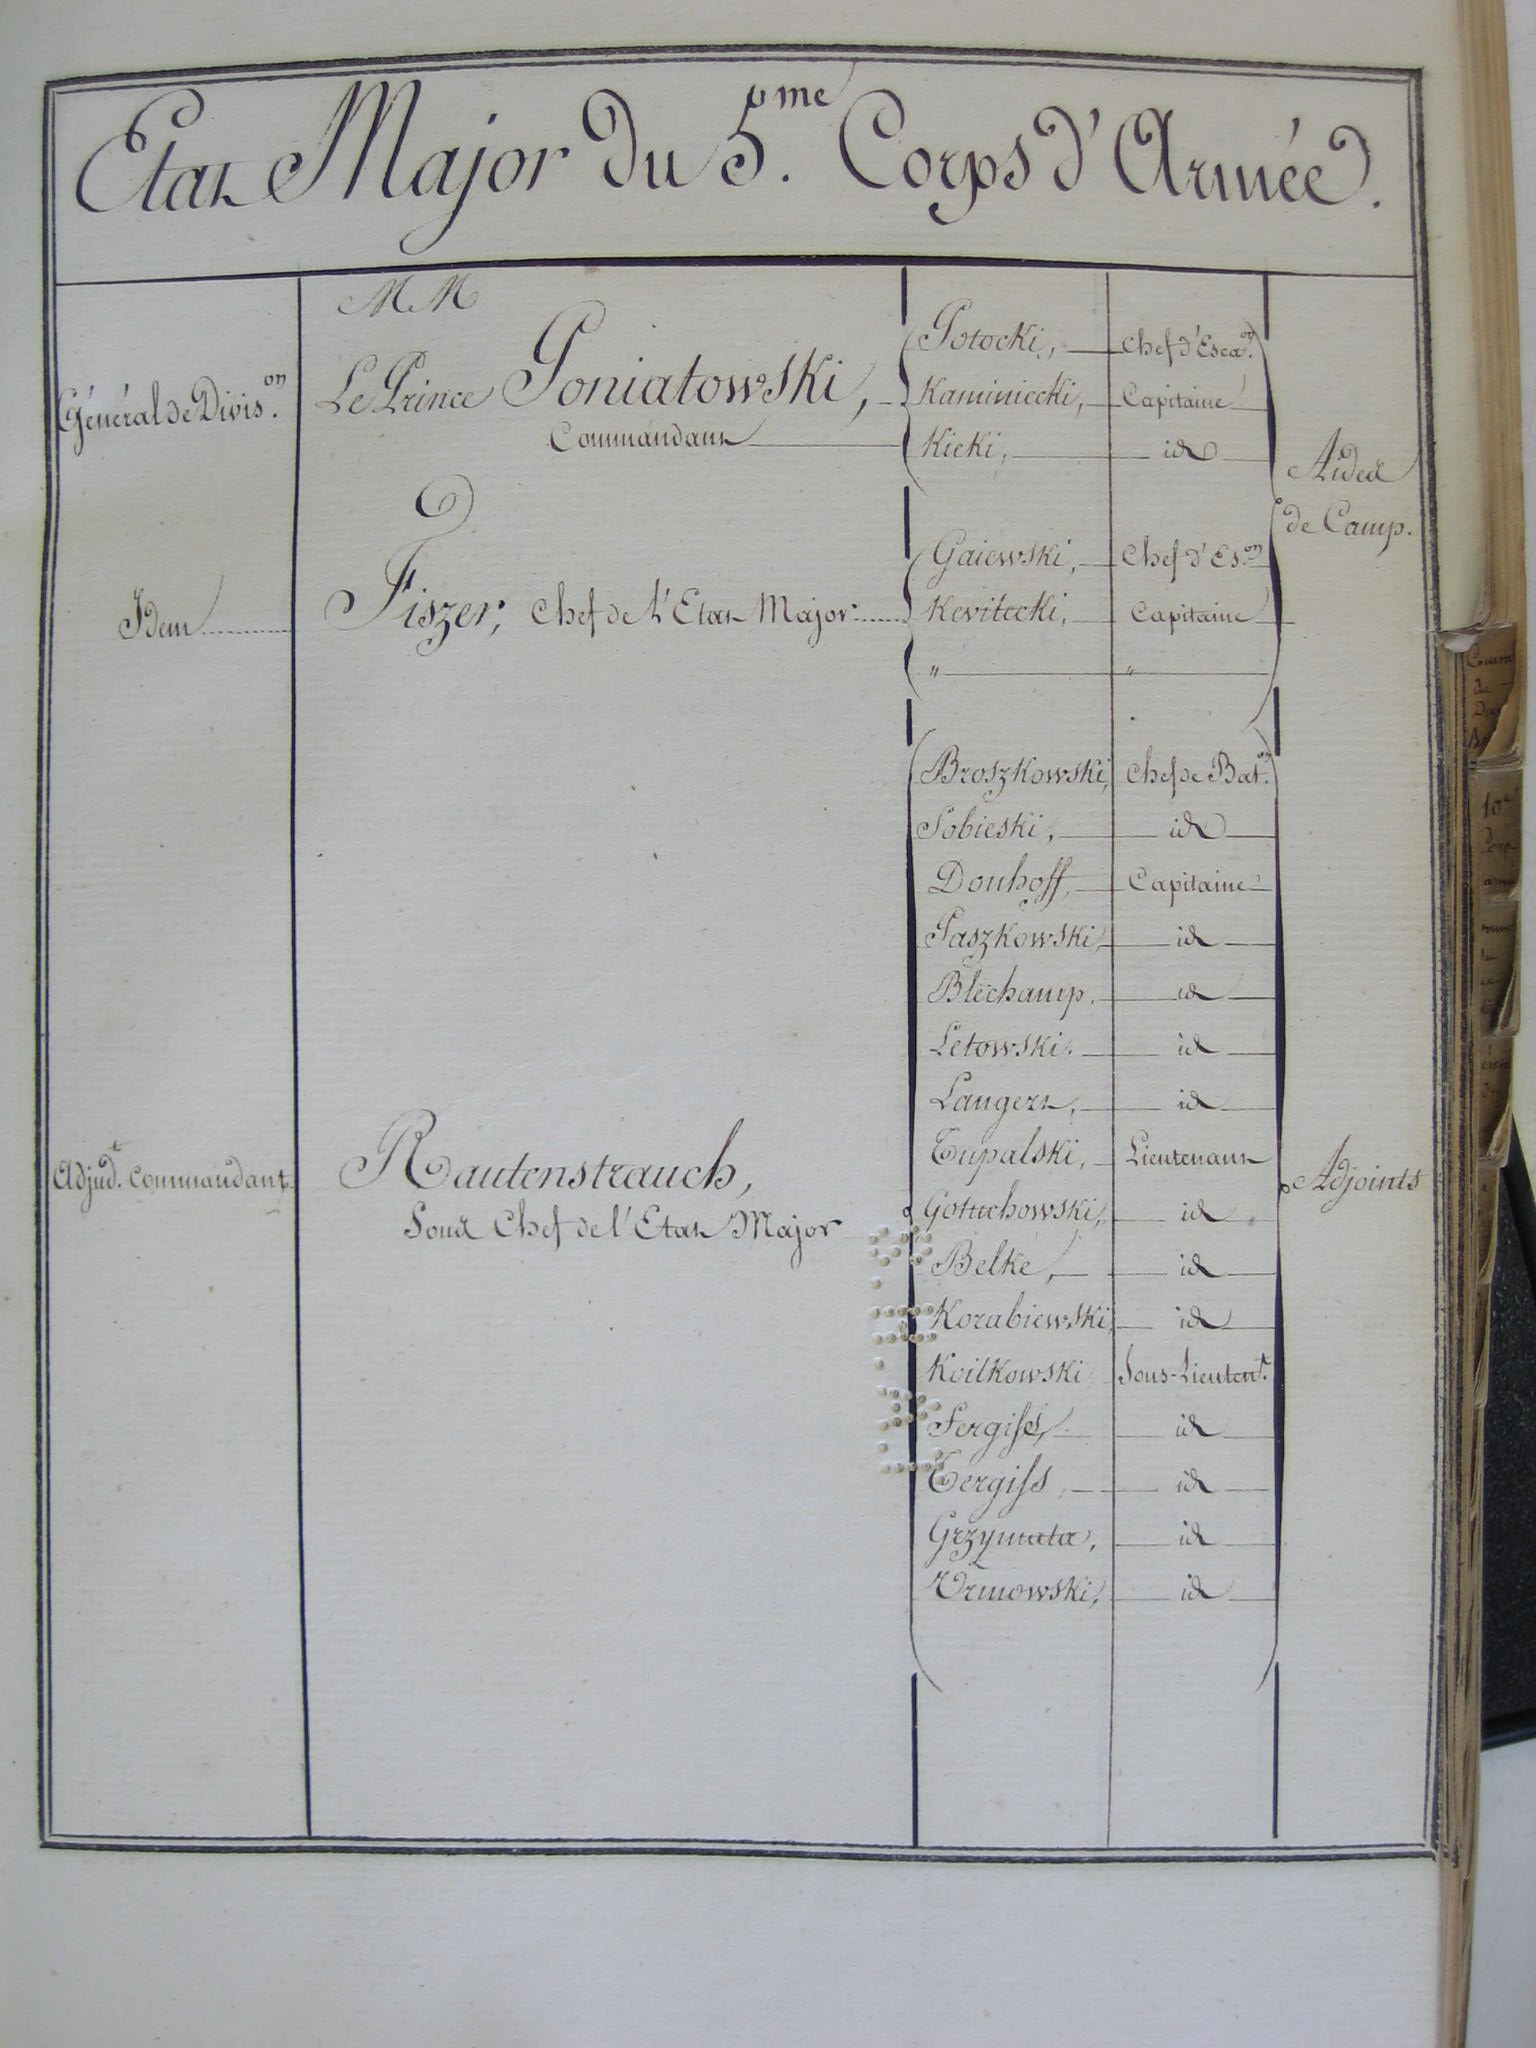 Etat Major du 5.me Corps d'Armée.
MM
Général de Divis.on
Le Prince Poniatowski,
Commandant
Potocki, Chef d'Esca.on
Kaminiecki, Capitaine
Kicki, id
Aides
de Camp.
Idem
Fiszer, Chef de l'Etat Major
Gaiewski, Chef d'Es.on
Kevitecki, Capitaine
" "
Broszkowski, Chef de Bat.on
Sobieski, id
Donhoff, Capitaine
Paszkowski, id
Bléchamp, id
Letowski, id
Langert, id
Adjud.t Commandant
Rautenstrauch,
Sous Chef de l'Etat Major
Tupalski, Lieutenant
Adjoints
Gotuchowski, id
Belke, id
Korabiewski, id
Koilkowski Sous-Lieuten.t
Sergiss, id
Tergiss, id
Grzymata, id
id